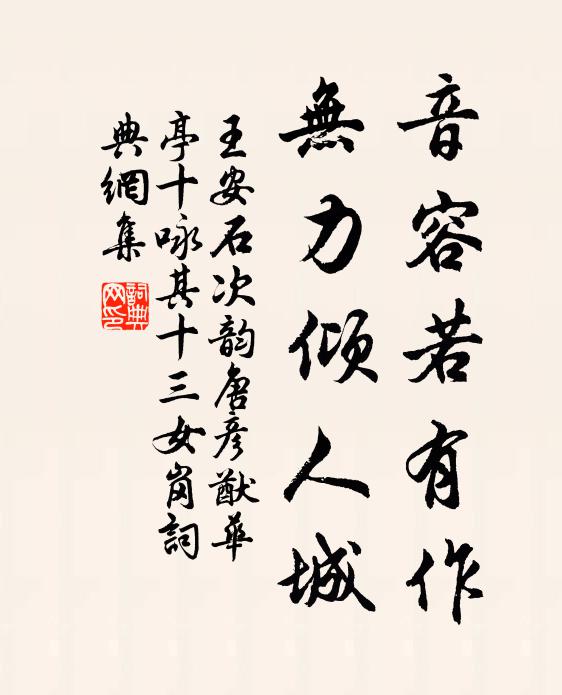 音容若有作
無力傾人城
王安石次韵唐彥猷華
亭十咏其十三女岗詞
典網集
詞典网印